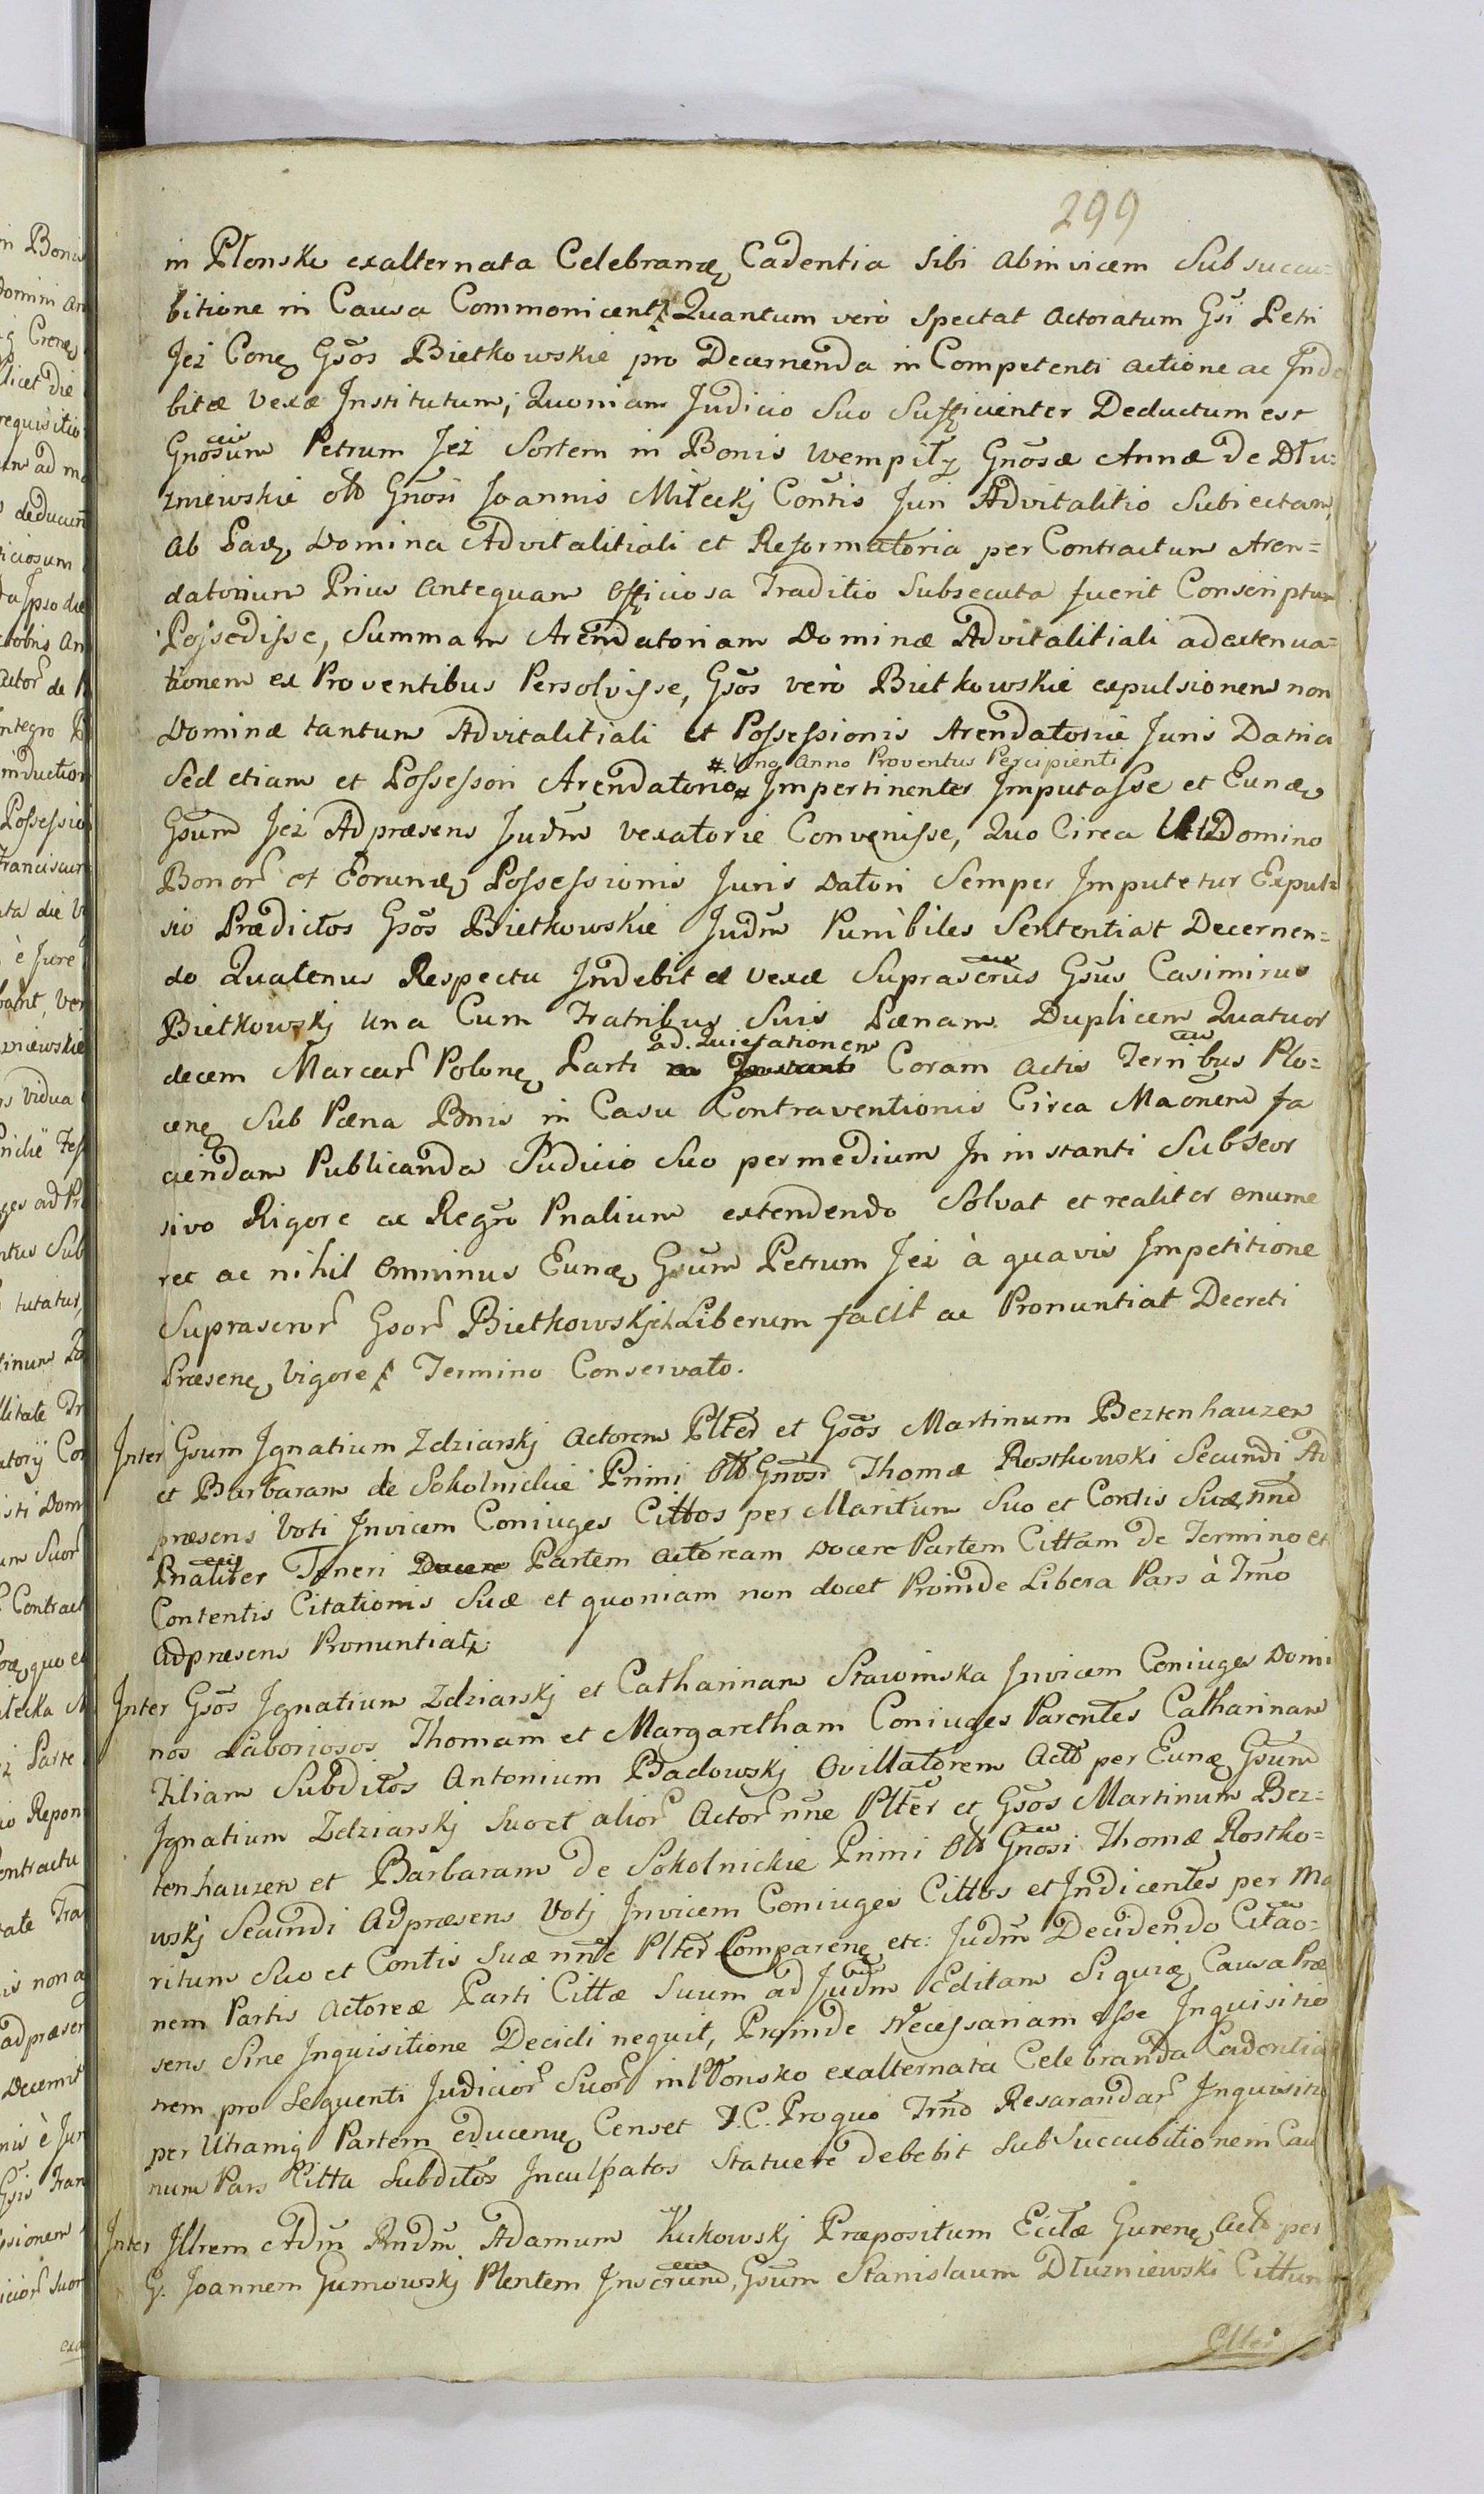 299
in Plonsko exalternata Celebranę Cadentia sibi abinvicem Sub succu=
bitione in Causa Commonicentz Quantum verò spectat actoratum Gsi Petri
Jeż Conę Gsos Bietkowskie pro Decernenda in Competenti actione ac Inde
bitæ vexæ Institutum, Quoniam Judicio Suo Sufficienter Deductum est
Gnosum Petrum Jeż Sortem in Bonis Wempiły Gnosæ Annæ de Dłu=
zniewskie olło Gnosi Joannis Miłeckj Contis Juri Advitalitio Subiectam,
ab Eadę Domina Advitalitiali et Reformatoria per Contractum Aren=
datorium Prius antequam officiosa Traditio Subsecuta fuerit Conscriptum
Possedisse, Summam Arendatoriam Dominæ Advitalitiali ad extenua=
tionem ex Proventibus Persolvisse, Gsos verò Bietkowskie expulsionem non
Dominæ tantum Advitalitiali et Possessionis Arendatoriæ Juris Datrici
#. Uno Anno Proventus Percipienti
Sed etiam et Possessori Arendatorio # Impertinenter Imputasse et Eundę
Gsum Jeż Ad præsens Judm vexatorie Convenisse, Quo Circa Domino
Bonor et Eorundę Possessionis Juris Datori Semper Imputetur Expul=
sio Prædictos Gsos Bietkowskie Judm Punibiles Sententiat Decernen=
do Quatenus Respectu Indebitæ vexæ Suprascrus Gsus Casimirus
Bietkowskj una Cum Fratribus Suis Pænam Duplicem Quatuor
ad. Quietationem
decem Marcar Polonę Parti Coram actis Terribus Plo=
cenę Sub Pæna Bnis in Casu Contraventionis Circa Maonem fa
ciendam Publicanda Judicio Suo permedium In instanti Subseor
sivo Rigore ac Regro Pnalium extendendo Solvat et realiter enume
ret ac nihil ominus Eundę Gsum Petrum Jeż à quavis Impetitione
Suprascror Gsor Bietkowskich Liberum facit ac Pronuntiat Decreti
Præsenę Vigore Termino Conservato.
Inter Gsum Ignatium Zdziarskj Actorem Plter et Gsos Martinum Beztenhauzen
et Barbaram de Sokolnickie Primi olło Gnosi Thomæ Rostkowski Secundi Ad
præsens Voti Invicem Coniuges Cittos per Maritum Suo et Contis Suæ nne
Pnaliter Teneri Docere Partem actoream Docere Partem Cittam de Termino et
Contentis Citationis Suæ et quoniam non docet Proinde Libera Pars à Trmo
adpræsens Pronuntiatz
Inter Gsos Ignatium Zdziarskj et Catharinam Stawinska Invicem Coniuges Domi
nos Laboriosos Thomam et Margaretham Coniuges Parentes Catharinam
Filiam Subditos Antonium Badowskj Ovillatorem Acto per Eundę Gsum
Ignatium Zdziarskj Suo et alior Actor nne Plter et Gsos Martinum Bez=
tenhauzen et Barbaram de Sokolnickie Primi olło Gnosi Thomæ Rostko=
wskj Secundi Adpræsens Votj Invicem Coniuges Cittos et Indicentes per Ma
ritum Suo et Contis Suæ nne Plter Comparenę etc: Judm Decidendo Citao=
nem Partis Actoreæ Parti Cittæ Suum ad Judm Editam Siquię Causa Præ
sens Sine Inquisitione Decidi nequit, Proinde Necessariam esse Inquisitio
nem pro Sequenti Judicior Suor in Plonsko exalternata Celebranda Cadentia
per Utramq Partem educenę Censet J.C. Pro quo Trmo Resarandar Inquisitio
num Pars Citta Subditos Inculpatos Statuere debebit Sub Succubitionem Cau
Inter Illrem Adm Rndm Adamum Kukowskj Præpositum Eccłæ Gurenę Acto per
G. Joannem Gumowskj Plentem Inscrum, Gsum Stanislaum Dłuzniewski Cittum
Plter